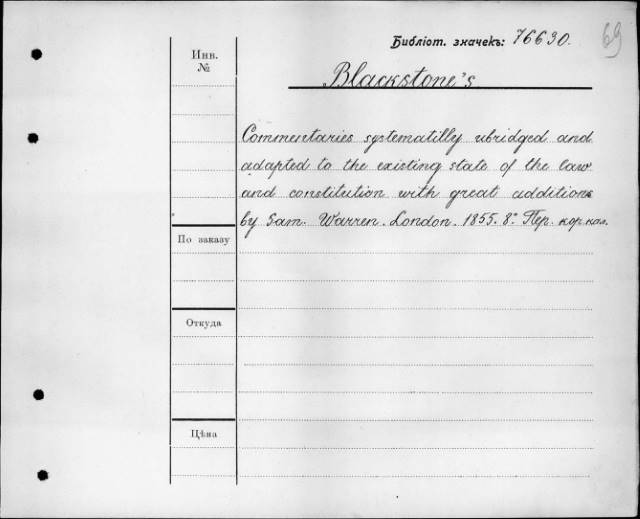 69
Библіот. значекъ: 76630.
Инв.
№
Blackstone's
Commentaries systematilly ubridged and
adapted to the existing state of the law
and constitution with great additions
by Sam. Warren. London. 1855. 8º Пер. кор. кал.
По заказу
Откуда
Цѣна